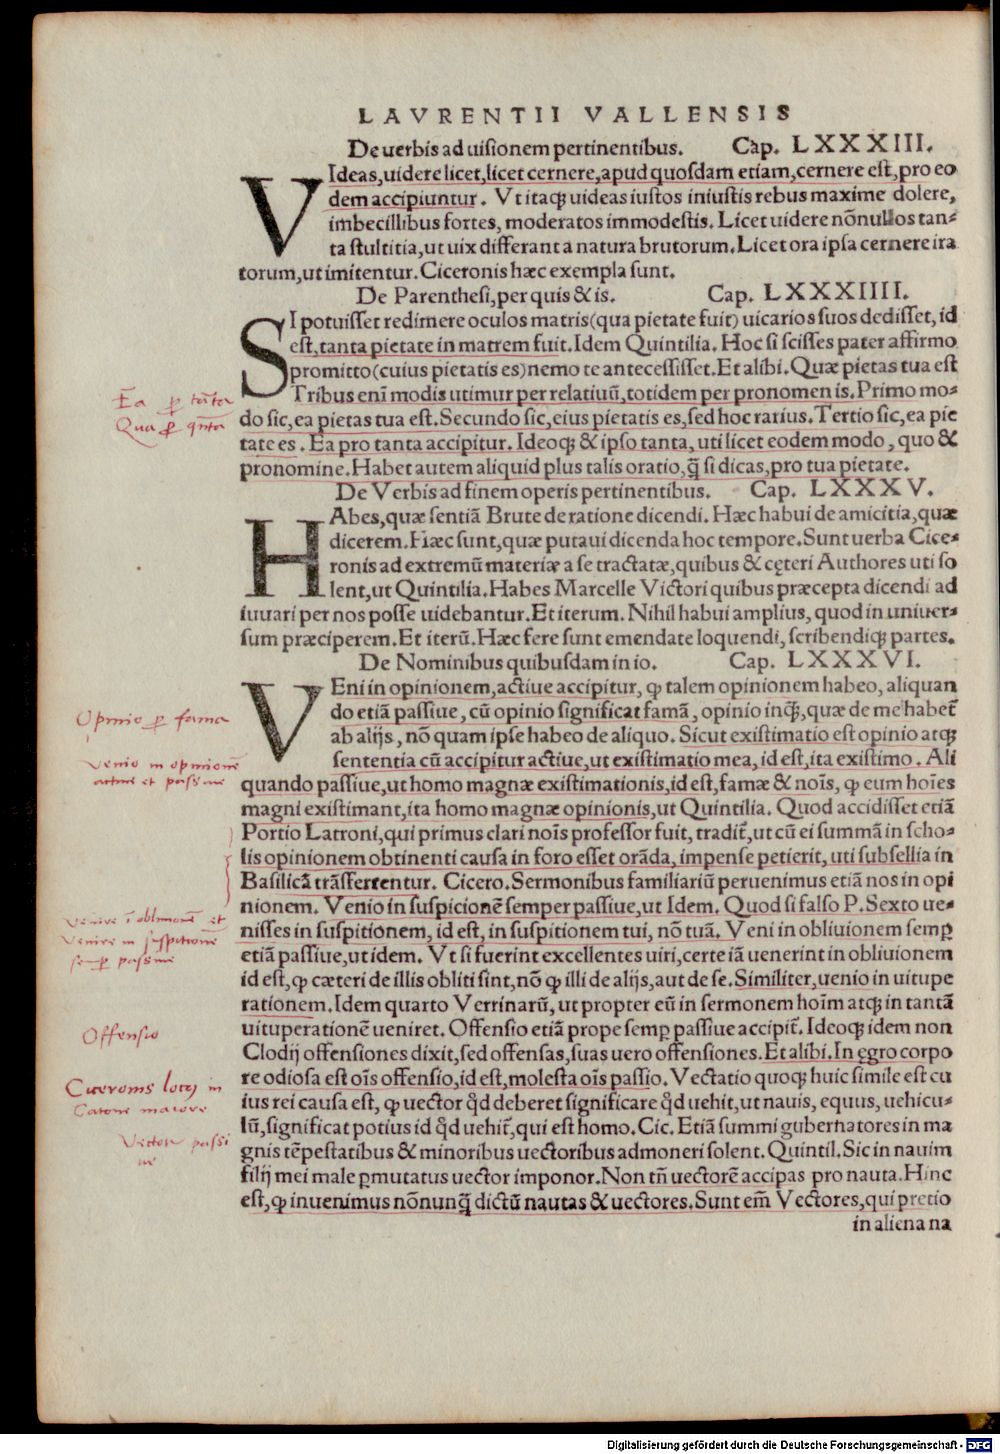 LAVRENTII VALLENSIS
De uerbis ad uisionem pertinentibus. Cap. LXXXIII.
VIdeas,uidere licet,licet cernere,apud quosdam etiam,cernere est,pro eo
dem accipiuntur. Vt itaqꝫ uideas iustos iniustis rebus maxime dolere,
imbecillibus fortes, moderatos immodestis. Licet uidere nōnullos tan-
ta stultitia,ut uix differant a natura brutorum.Licet ora ipsa cernere ira
torum,ut imitentur. Ciceronis hæc exempla sunt.
De Parenthesi,per quis & is. Cap. LXXXIIII.
SI potuisset redimere oculos matris(qua pietate fuit) uicarios suos dedisset, id
est,tanta pietate in matrem fuit.Idem Quintilia. Hoc si scisses pater affirmo
promitto(cuius pietatis es)nemo te antecessisset.Et alibi.Quæ pietas tua est
Tribus enī modis utimur per relatiuū,totidem per pronomen is.Primo mo-
do sic,ea pietas tua est.Secundo sic,eius pietatis es,sed hoc rarius.Tertio sic,ea pie
tate es. Ea pro tanta accipitur. Ideoqꝫ & ipso tanta, uti licet eodem modo, quo &
pronomine.Habet autem aliquid plus talis oratio,q̄ si dicas,pro tua pietate.
De Verbis ad finem operis pertinentibus. Cap. LXXXV.
HAbes,quæ sentiā Brute de ratione dicendi.Hæc habui de amicitia,quæ
dicerem.Hæc sunt,quæ putaui dicenda hoc tempore.Sunt uerba Cice-
ronis ad extremū materiæ a se tractatæ,quibus & cęteri Authores uti so
lent,ut Quintilia.Habes Marcelle Victori quibus præcepta dicendi ad
iuuari per nos posse uidebantur.Et iterum. Nihil habui amplius, quod in uniuer-
sum præciperem.Et iterū.Hæc fere sunt emendate loquendi, scribendiqꝫ partes.
De Nominibus quibusdam in io. Cap. LXXXVI.
VEni in opinionem,actiue accipitur, ꝙ talem opinionem habeo, aliquan
do etiā passiue, cū opinio significat famā, opinio inqꝫ, quæ de me habet̄
ab alijs, nō quam ipse habeo de aliquo. Sicut existimatio est opinio atqꝫ
sententia cū accipitur actiue,ut existimatio mea, id est,ita existimo. Ali
quando passiue,ut homo magnæ existimationis,id est,famæ & nōis, ꝙ eum hoīes
magni existimant,ita homo magnæ opinionis,ut Quintilia. Quod accidisset etiā
Portio Latroni,qui primus clari nōis professor fuit, tradit̄,ut cū ei summā in scho-
lis opinionem obtinenti causa in foro esset orāda, impense petierit, uti subsellia in
Basilicā trāsferrentur. Cicero.Sermonibus familiariū peruenimus etiā nos in opi
nionem. Venio in suspicionē semper passiue,ut Idem. Quod si falso P.Sexto ue-
nisses in suspitionem, id est, in suspitionem tui, nō tuā. Veni in obliuionem semꝑ
etiā passiue,ut idem. Vt si fuerint excellentes uiri,certe iā uenerint in obliuionem
id est,ꝙ cæteri de illis obliti sint,nō ꝙ illi de alijs,aut de se.Similiter,uenio in uitupe
rationem.Idem quarto Verrinarū, ut propter eū in sermonem hoīm atqꝫ in tantā
uituperationē ueniret. Offensio etiā prope semꝑ passiue accipit̄. Ideoqꝫ idem non
Clodij offensiones dixit,sed offensas,suas uero offensiones.Et alibi.In ęgro corpo
re odiosa est oīs offensio,id est,molesta oīs passio.Vectatio quoqꝫ huic simile est cu
ius rei causa est, ꝙ uector qd̄ deberet significare qd̄ uehit,ut nauis, equus, uehicu-
lū,significat potius id qd̄ uehit̄,qui est homo. Cic. Etiā summi gubernatores in ma
gnis tēpestatibus & minoribus uectoribus admoneri solent. Quintil.Sic in nauim
filij mei male ꝑmutatus uector imponor.Non tn̄ uectorē accipas pro nauta.Hinc
est,ꝙ inuenimus nōnunq̄ dictū nautas & uectores.Sunt em̄ Vectores,qui pretio
in aliena na
Ea ꝑ tāta
Qua ꝑ q̄nta
Opinio ꝑ fama
Venio in opinionē
actiue et passiue
Venire ī obliuionē et
Venire in suspitionē
semꝑ passiue
Offensio
Ciceronis locꝰ in
Catone maiore
Vector passi
ue
Digitalisierung gefördert durch die Deutsche Forschungsgemeinschaft - DFG